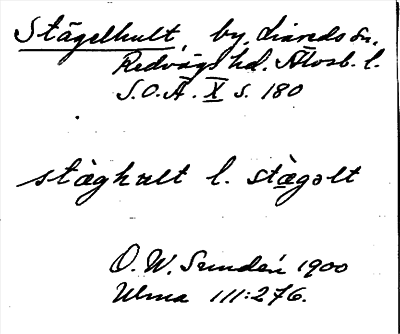 Stägelhult, by, Liareds sn,
Redvägs hd. Älvsb. l.
S.O.Ä. X s. 180
stàghult l. stàgəlt
O. W. Sundén 1900
Ulma 111:276.